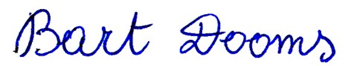 Bart Dooms